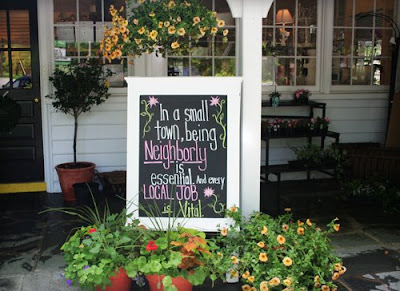 In a small
town, being
Neighborly
is
essential. And every
LOCAL JOB
is Vital.